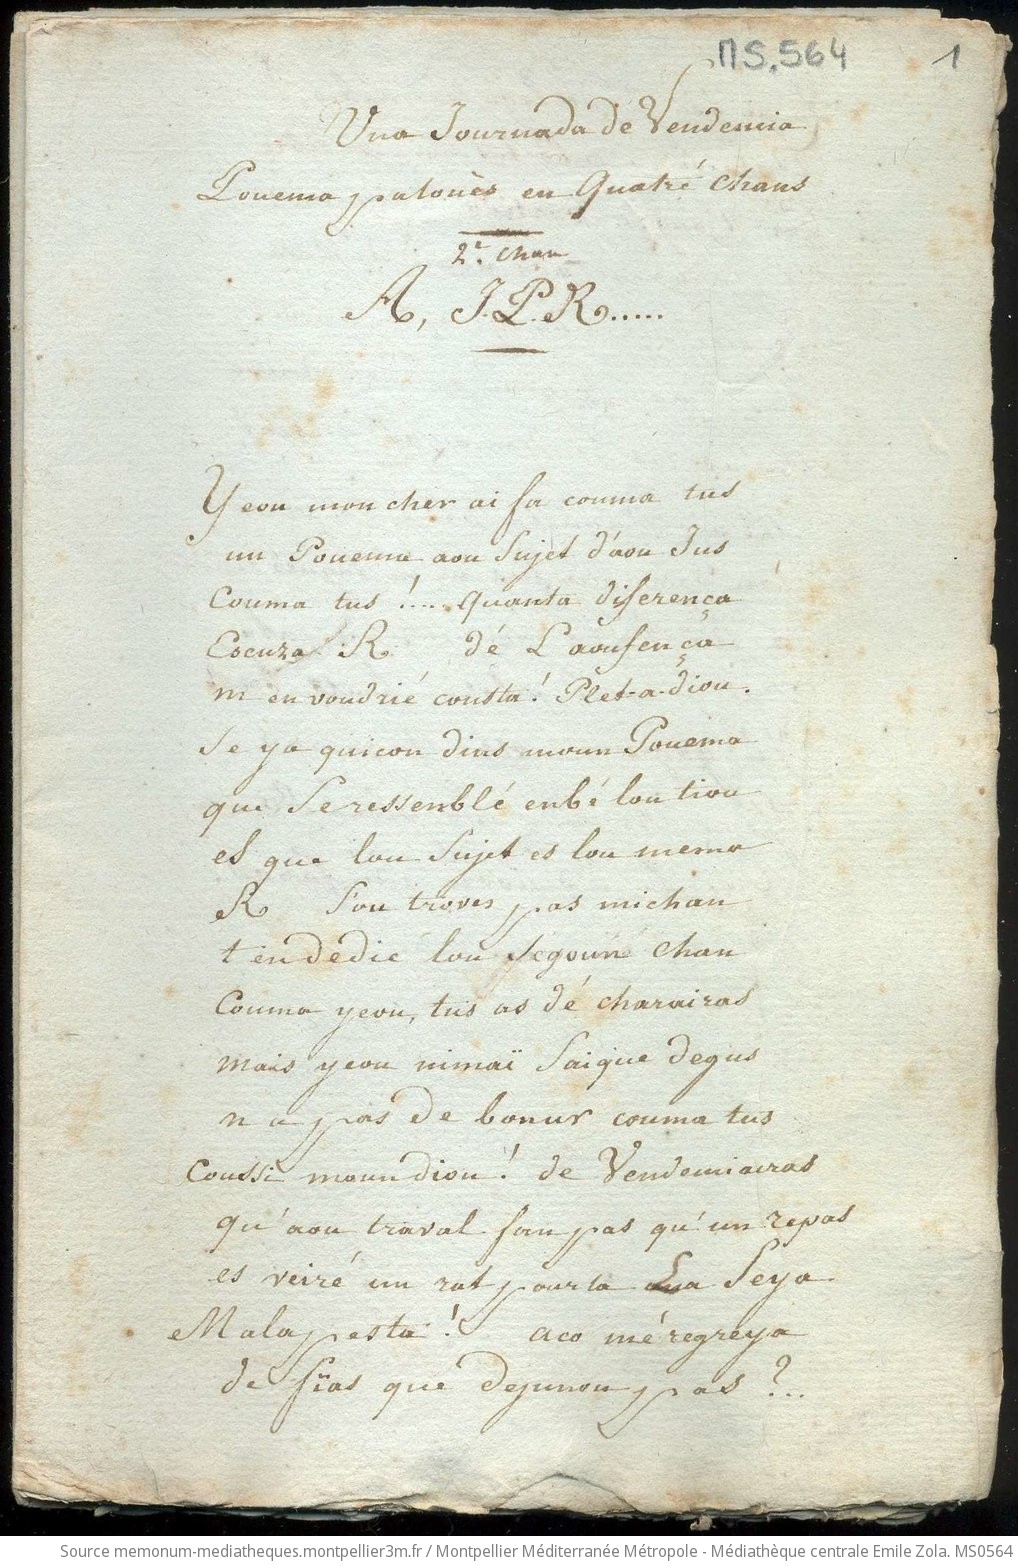 MS.564
1
Una Journada dé Vendemia
Pouema patouès en Quatré Chans
2e. chan
A, J.P.R.....
Yeou mou cher ai fa couma tus
un Pouema aou Sujet d'aou Jus
Couma tus !.... quanta diferença
Escuza R dé L'aoufença
m'en voudrié consta! Plet-a-diou.
Se ya quicon dins moun Pouema
que Se ressemblé enbé lou tiou
es que lou Sujet es lou mema
R S'ou troves pas michan
t'en dedie lou Segoun chan
Couma yeou, tus as dé charairas
mais yeou nimaï Saique degus
n'a pas de bonur couma tus
Coussi moun diou! de Vendemiairas
qu'aou traval fan pas qu'un repas
es veiré un rat pourta La Seya
Malapesta! aco mé regreya
de fïas qué dejunou pas?..
Source memonum-mediatheques.montpellier3m.fr / Montpellier Méditerranée Métropole - Médiathèque centrale Emile Zola. MS0564